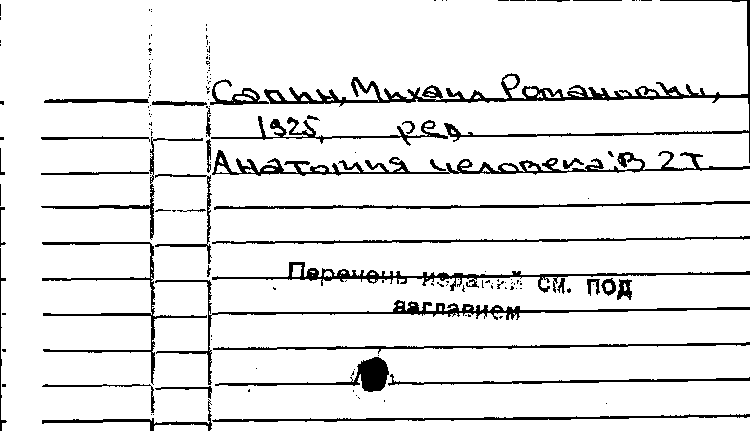 Сапин, Михаил Романович,
1925, ред.
Анатомия человека: В 2 т.
Перечень изданий см. под
заглавием